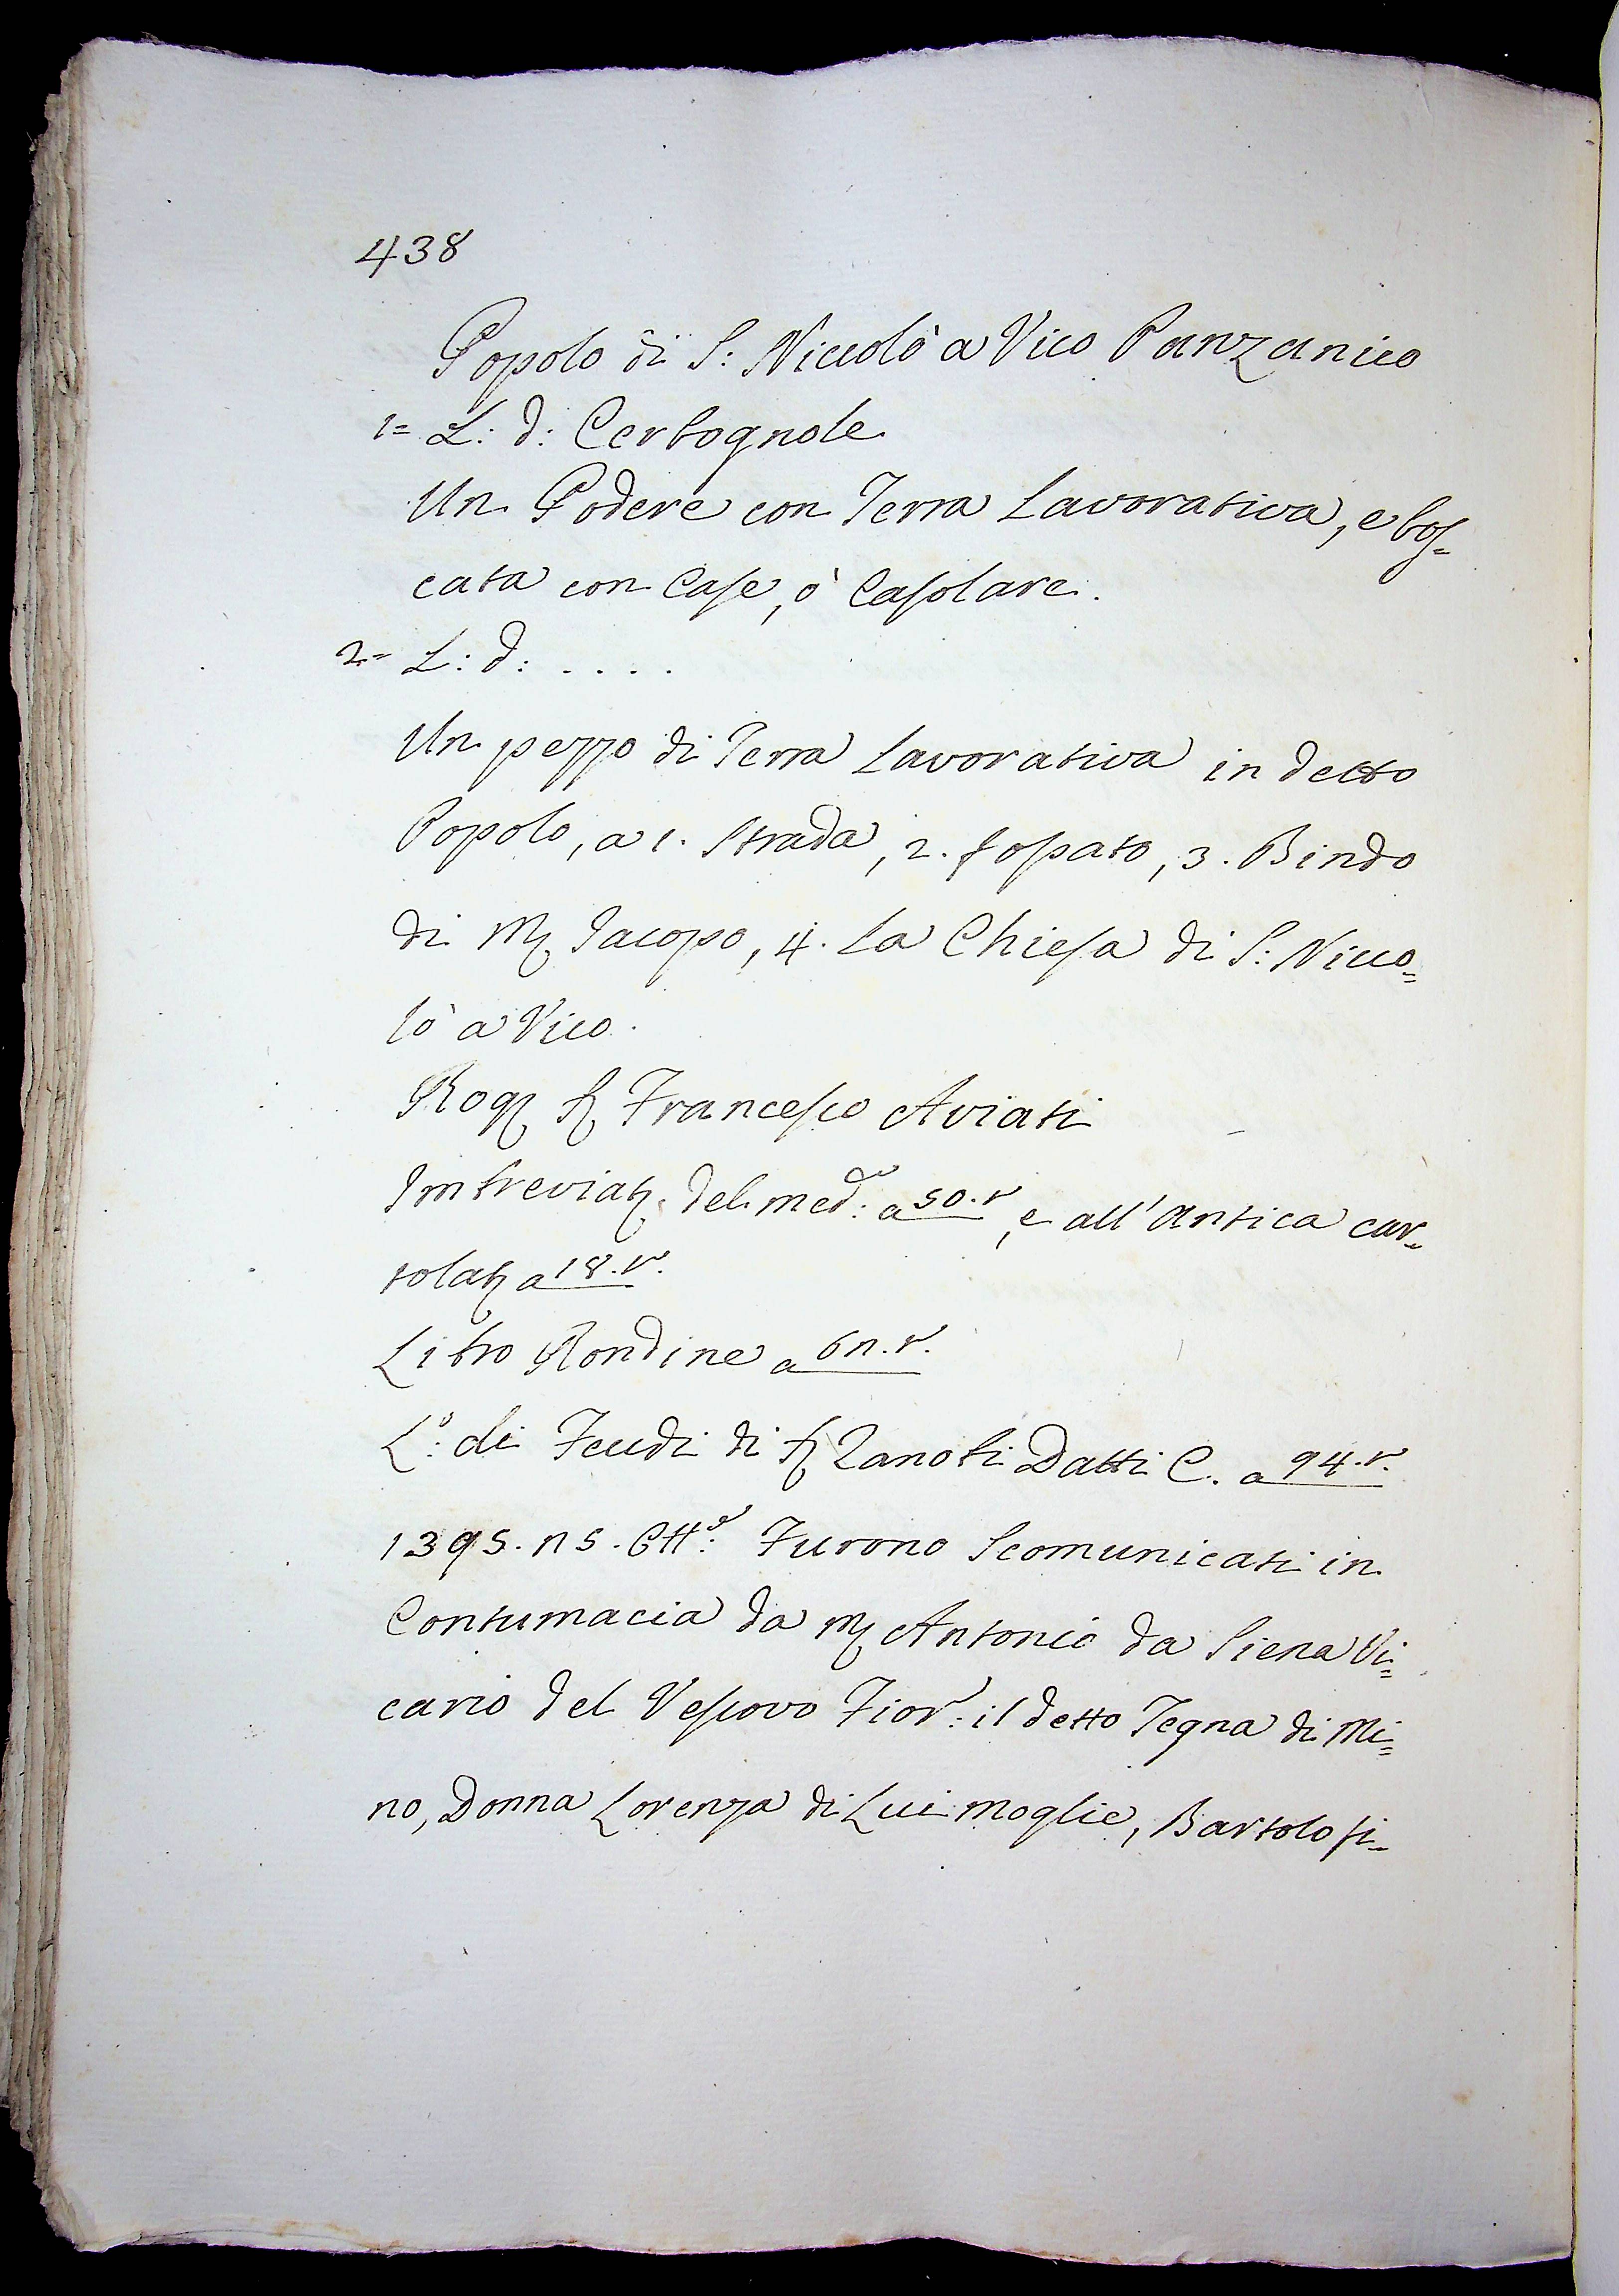 438
Popolo di S: Niccolò a Vico Panzanico
1= L: d: Cerbognole
Un Podere con Terra Lavorativa, e bos=
cata con Case, ò Casolare.
2= L: d: ....
Un pezzo di Terra Lavorativa in detto
Popolo, a 1. Strada, 2. fossato, 3. Bindo
di M Jacopo, 4. La Chiesa di S: Nicco=
lò a Vico.
Rog S Francesco Aviati
Imbreviat. del med:o a 50.r, e all'Antica car=
tolat a 18.r.
Libro Rondine a 67.r.
L:o di Feudi di S Zanobi Datti C. a 94.r.
1395. 75. Ott:e Furono Scomunicati in
Contumacia da M Antonio da Siena Vi=
cario del Vescovo Fior: il detto Tegna di Mi=
no, Donna Lorenza di Lui moglie, Bartolo fi=